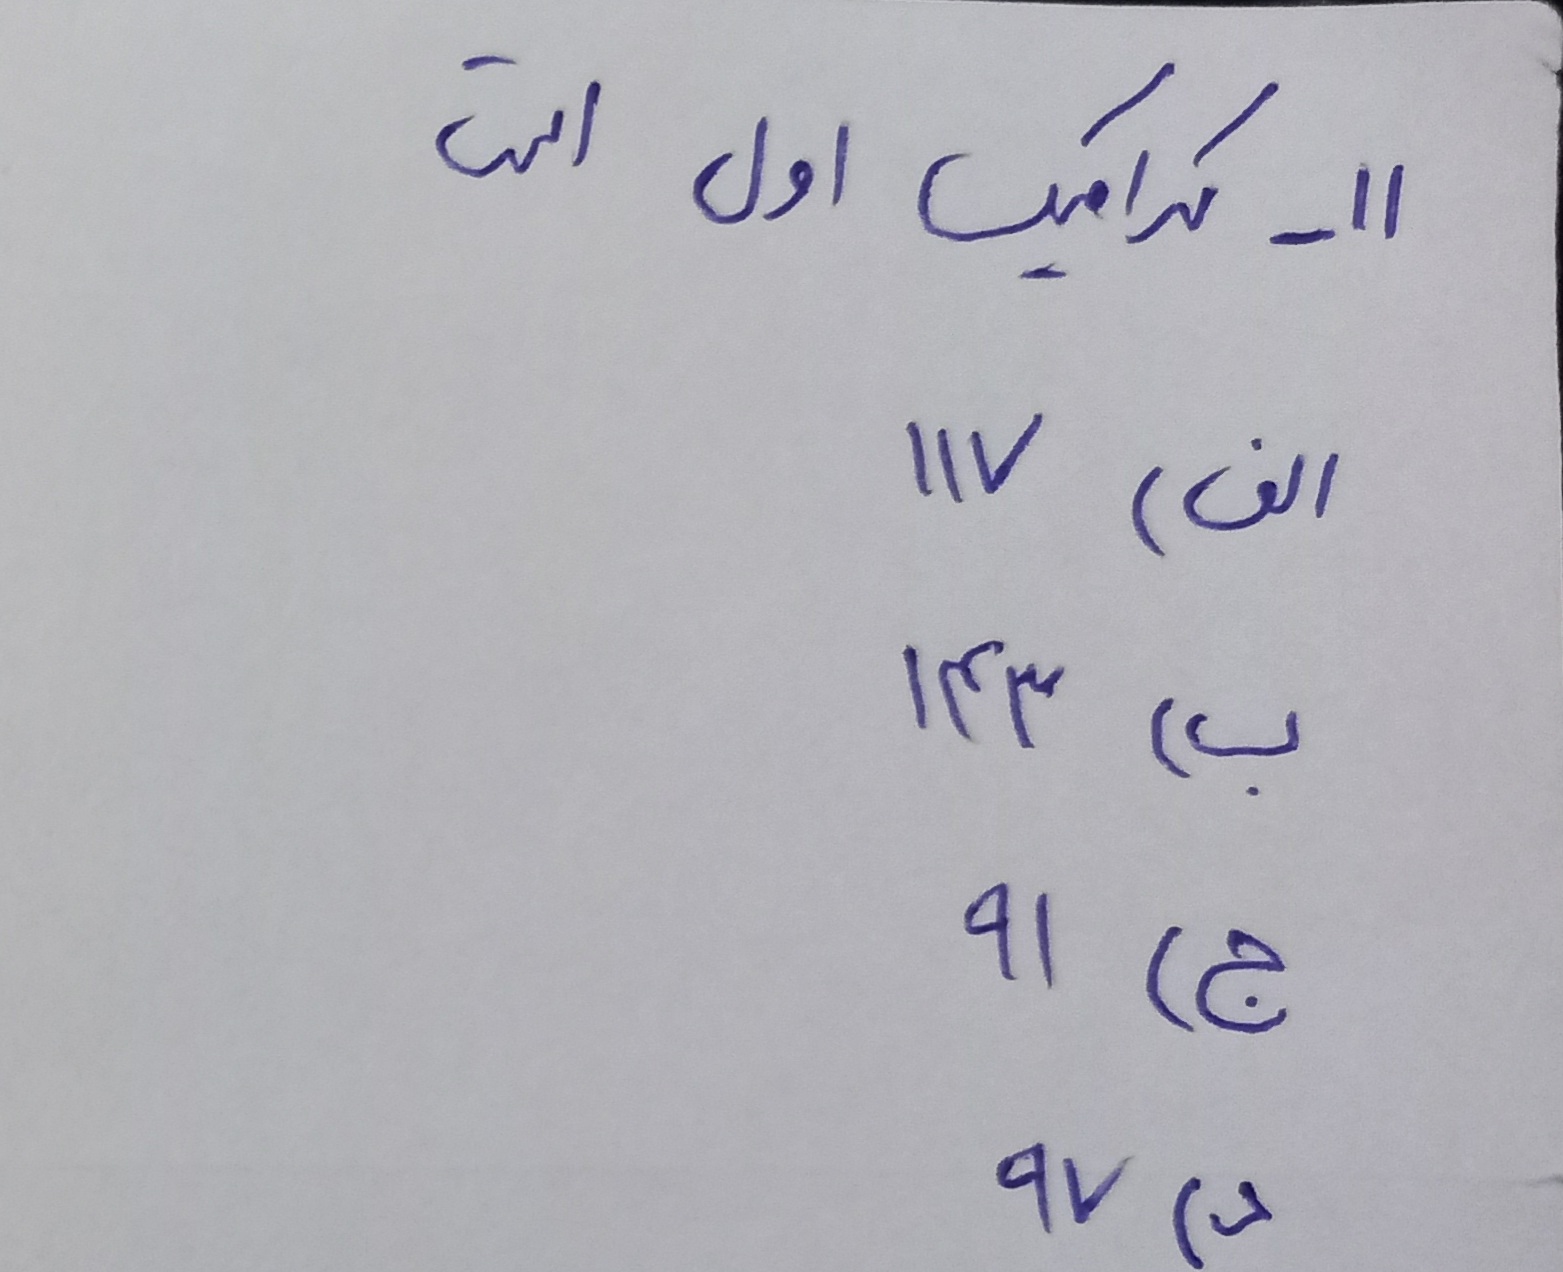 ۱۱- کدامیک اول است
الف) ۱۱۷
ب) ۱۴۳
ج) ۹۱
د) ۹۷